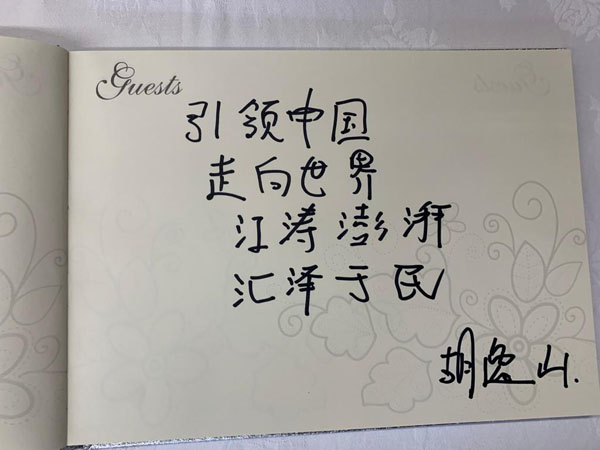 Guests
引领中国
走向世界
江涛澎湃
汇泽于民
胡逸山.